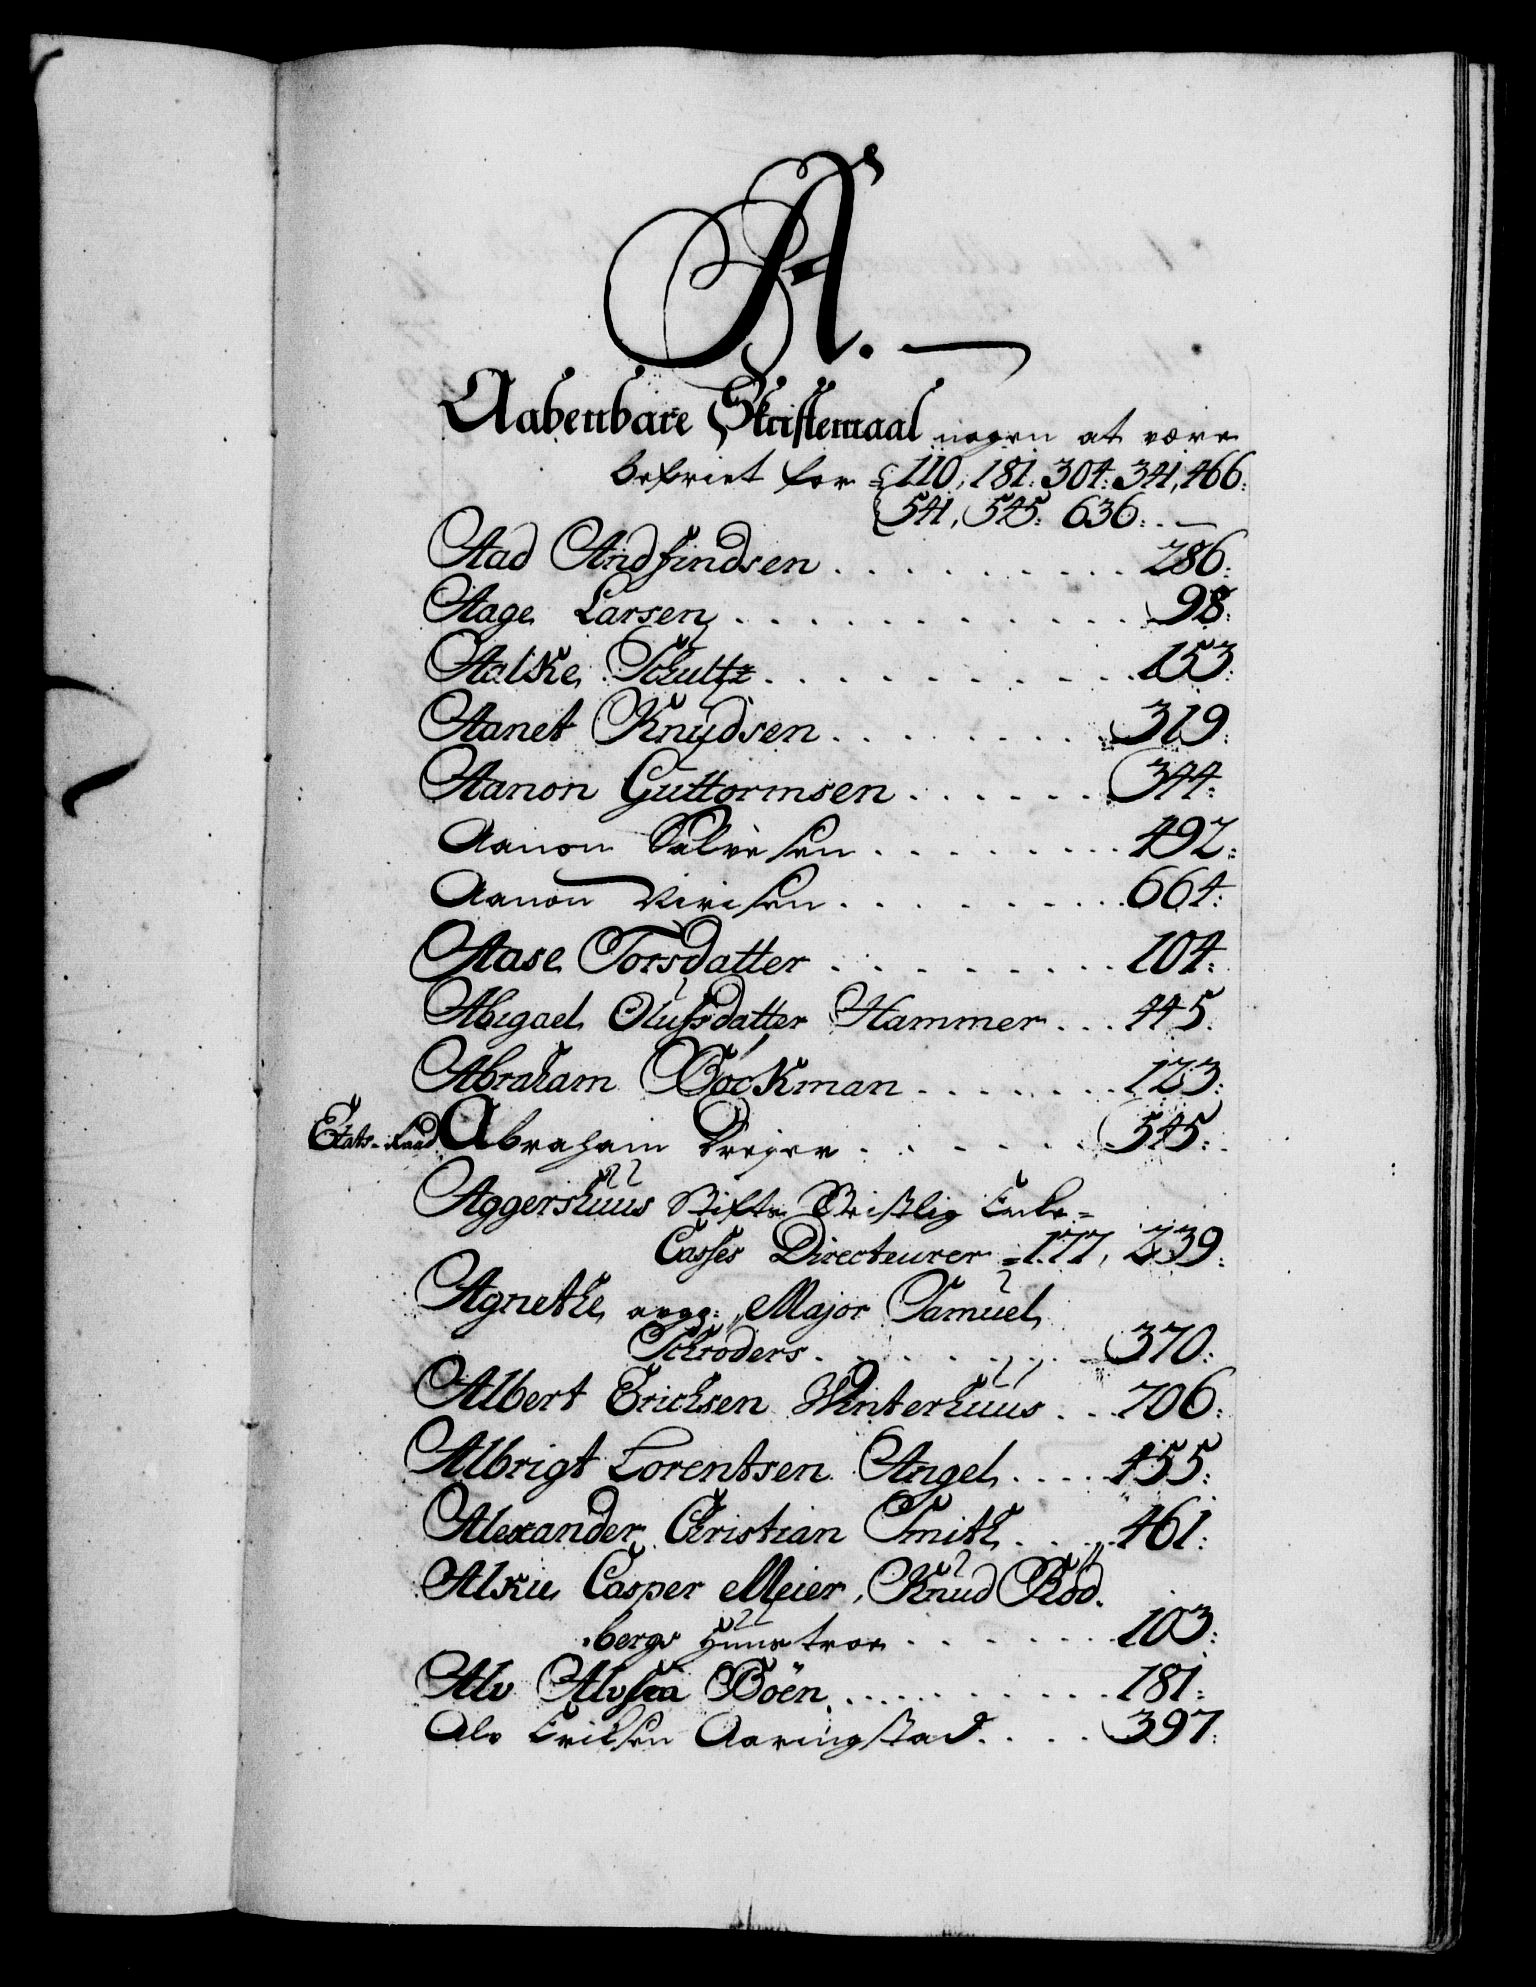 A.
Aabenbare Skriftemaal nogen at være
befriet for = 110, 181. 304. 341, 466.
541, 545. 636.
Aad Andfindsen . . . 286.
Aage Larsen . . . 98.
Aalke Schultz . . . 153.
Aanet Knudsen . . . 319.
Aanon Guttormsen . . . 344.
Aanon Salvesen . . . 492.
Aanon . . . 664.
Aase Torsdatter . . . 104.
Abigael Olufsdatter Hammer . . . 445.
Abraham Böckman . . . 123.
Etats-Raad Abraham Dreyer . . . 545.
Aggershuus Stifts Geistlig Enke=
Casses Directeurer = 177, 239.
Agnethe Major Samuel
Schröders . . . 370.
Albert Erichsen Winterhuus . . 706.
Albrigt Lorentsen Angel . . . 455.
Alexander Christian Smith . . . 461.
Alkie Casper Meier, Knud Röd.
bergs Huustroe . . . 103.
Alv Alvsen Böen . . . 181.
Alv Erichsen Aaringstad . . . 397.